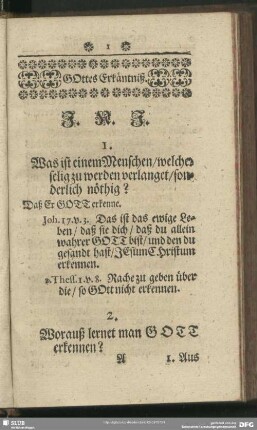 1
GOttes Erkäntniß.
J. N. J.
1.
Was ist einem Menschen/welcher
selig zu werden verlanget/son-
derlich nöthig?
Daß Er GOTT erkenne.
Joh. 17. v. 3. Das ist das ewige Le-
ben/ daß sie dich/ daß du allein
wahrer GOTT bist/ und den du
gesandt hast/ JEsum Christum
erkennen.
2. Thess. 1. v. 8. Rache zu geben über
die/ so GOtt nicht erkennen.
2.
Worauß lernet man GOTT
erkennen?
A 1. Aus
SLUB
DFG